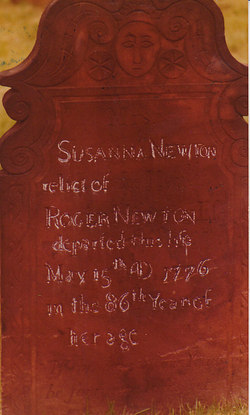 SUSANNA NEWTON
relict of
ROGER NEWTON
departed this life
May 15th AD 1776
in the 86th Year of
her age